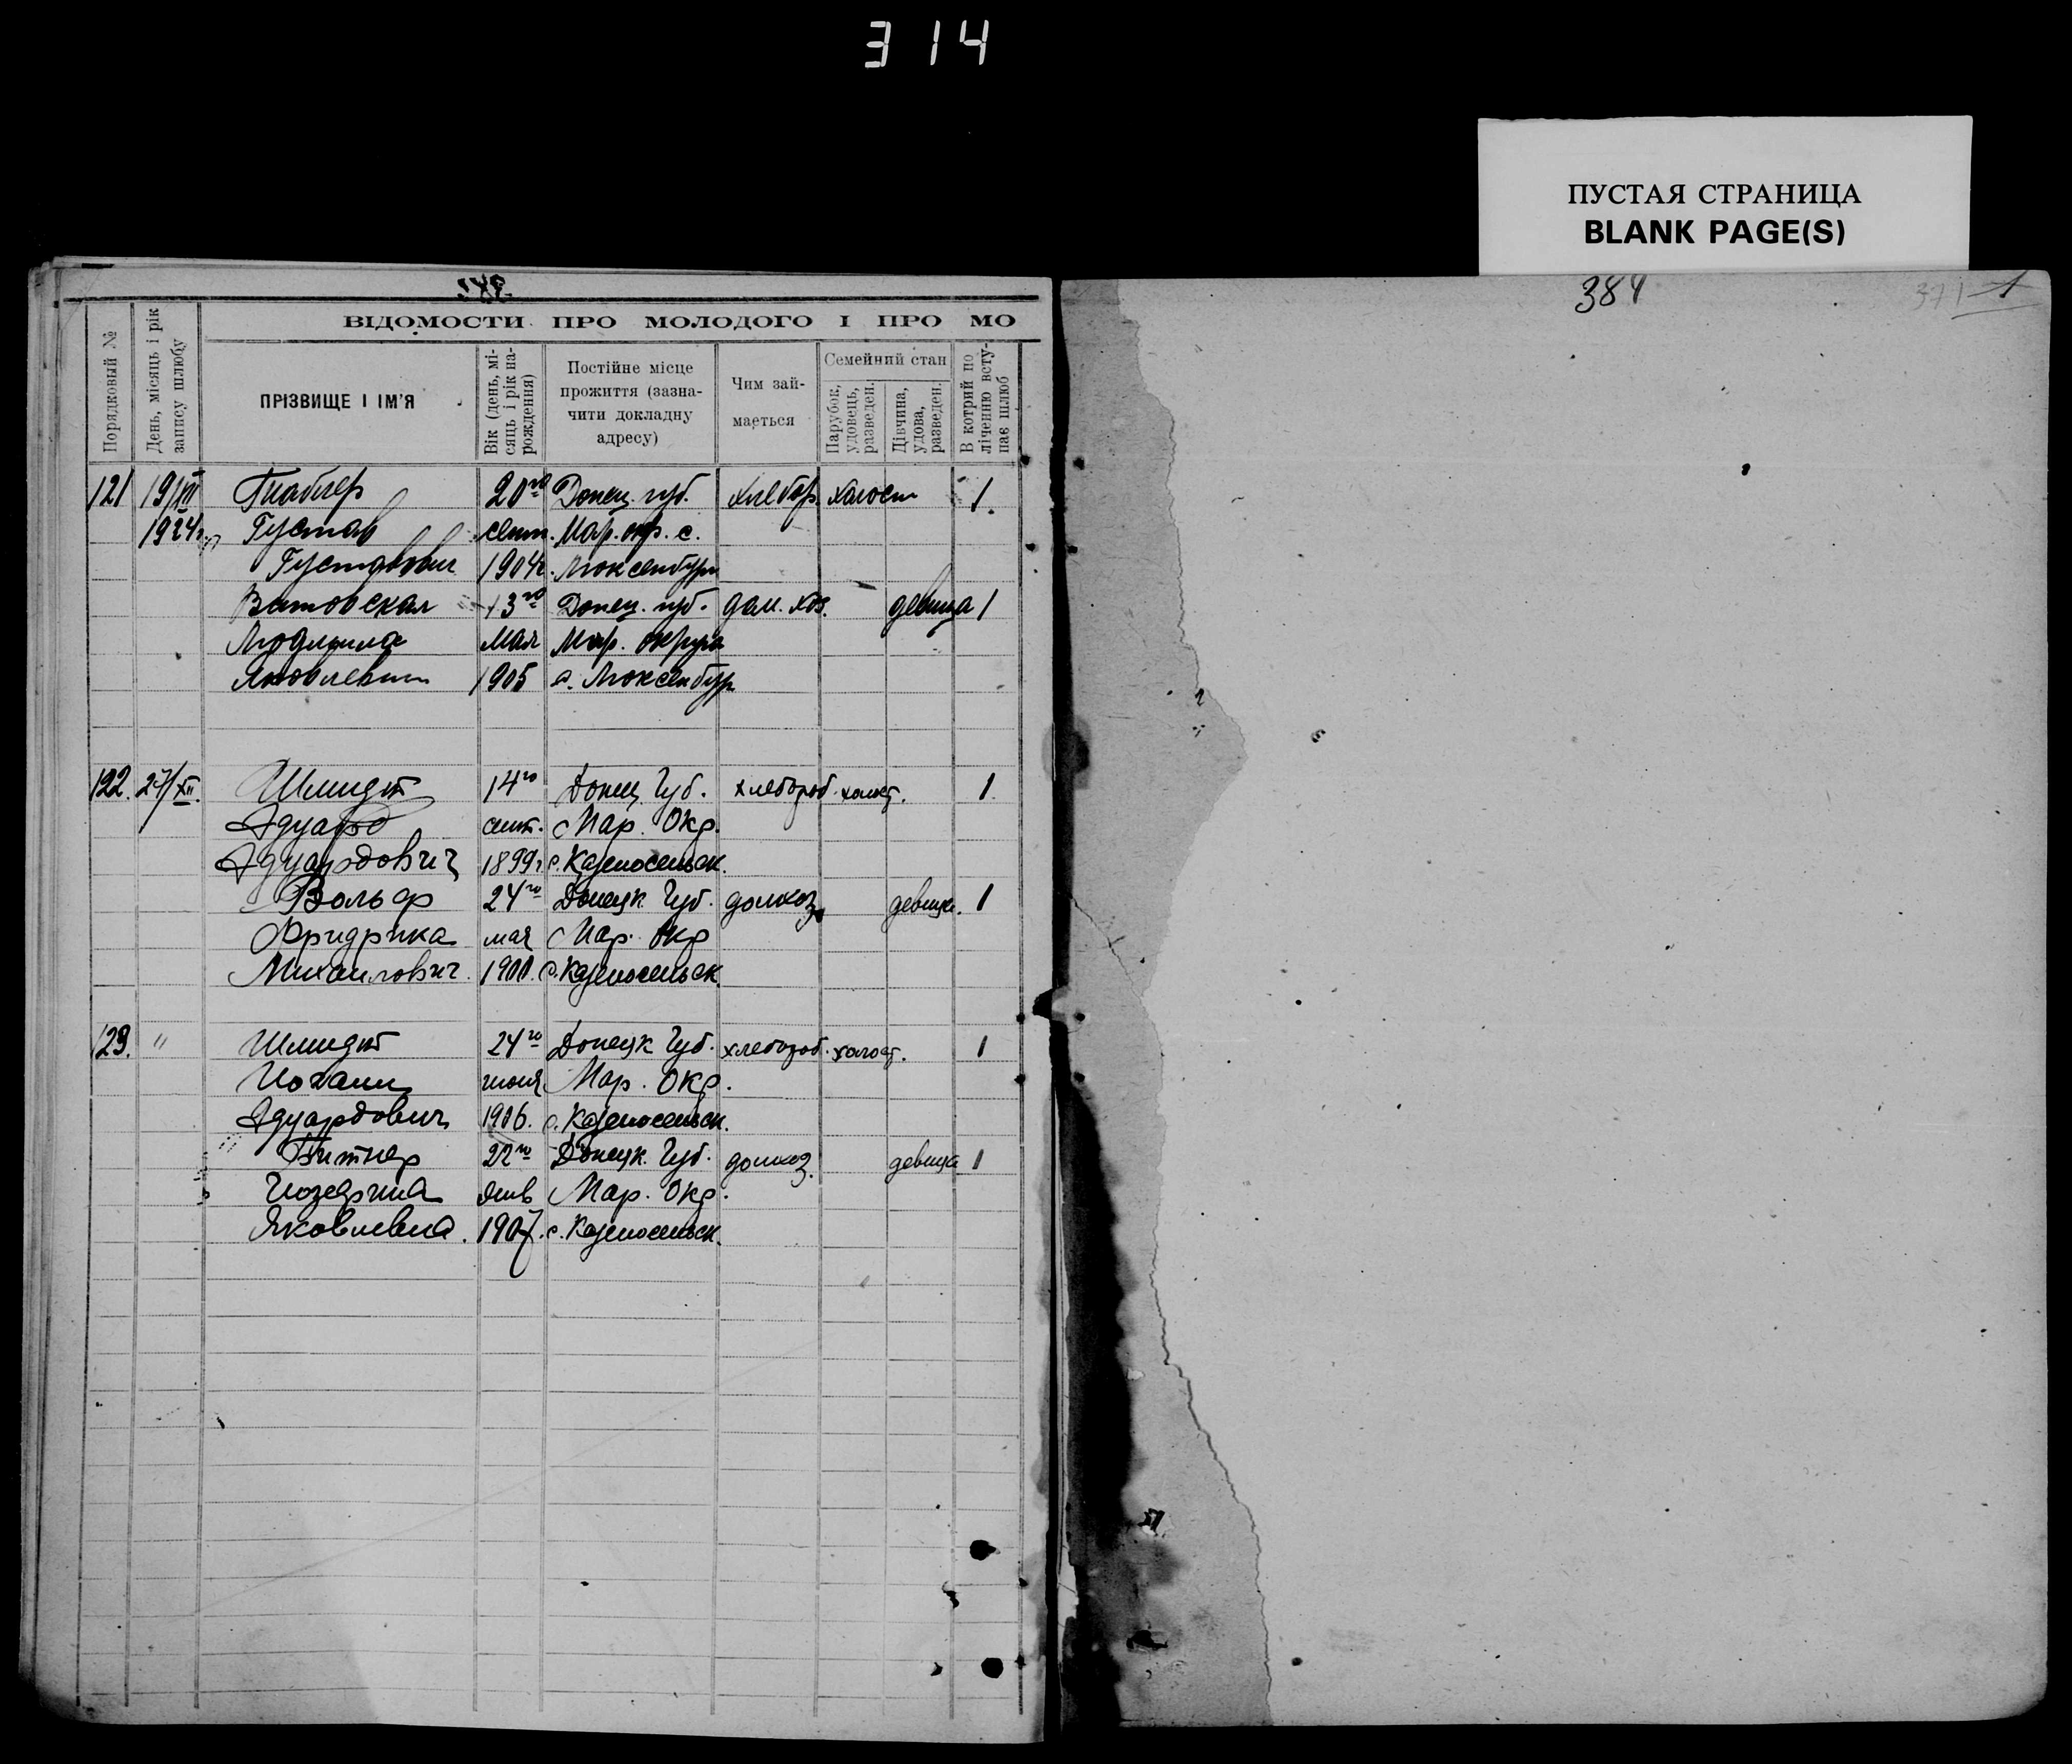 314
ПУСТАЯ СТРАНИЦА
BLANK PAGE(S)
384
371
1
ВІДОМОСТИ ПРО МОЛОДОГО І ПРО МО
Порядковый №
День, місяць і рік запису шлюбу
ПРІЗВИЩЕ І ІМ'Я
Вік (день, мі-
сяць і рік на-
рождения)
Постійне місце
прожиття (зазна-
чити докладну
адресу)
Чим зай-
мається
Семейний стан
Парубок,
удовець,
разведен.
Дівчина,
удова,
разведен.
В котрий по
ліченню всту-
пає шлюб
121 19/XII 20го Донец. губ. хлебор. холост 1.
1924г. Густав сент. Мар. окр. с.
Густавович 1904г. Люксембург
Витовская 13го Донец. губ. дом. хоз. девица 1
Людмила мая Мар. округа
1905 с. Люксембург
122. 27/XII. Шмидт 14го Донец Губ. хлебороб. холост. 1.
Эдуард сент. Мар. Окр.
Эдуардович 1899г с. Казеносельск.
Вольф 24го Донецк Губ. домхоз девица. 1
Фридрика мая Мар. Окр
Михаилович. с. Казеносельск.
123. " Шмидт 24го Донецк Губ. хлебороб. холост. 1
Иоханн июня Мар. Окр.
Эдуардович 1906. с. Казеносельск.
Битнер 22го Донецк. Губ. домхоз. девица 1
янв Мар. Окр.
Яковлевна. 1907. с. Казеносельск.